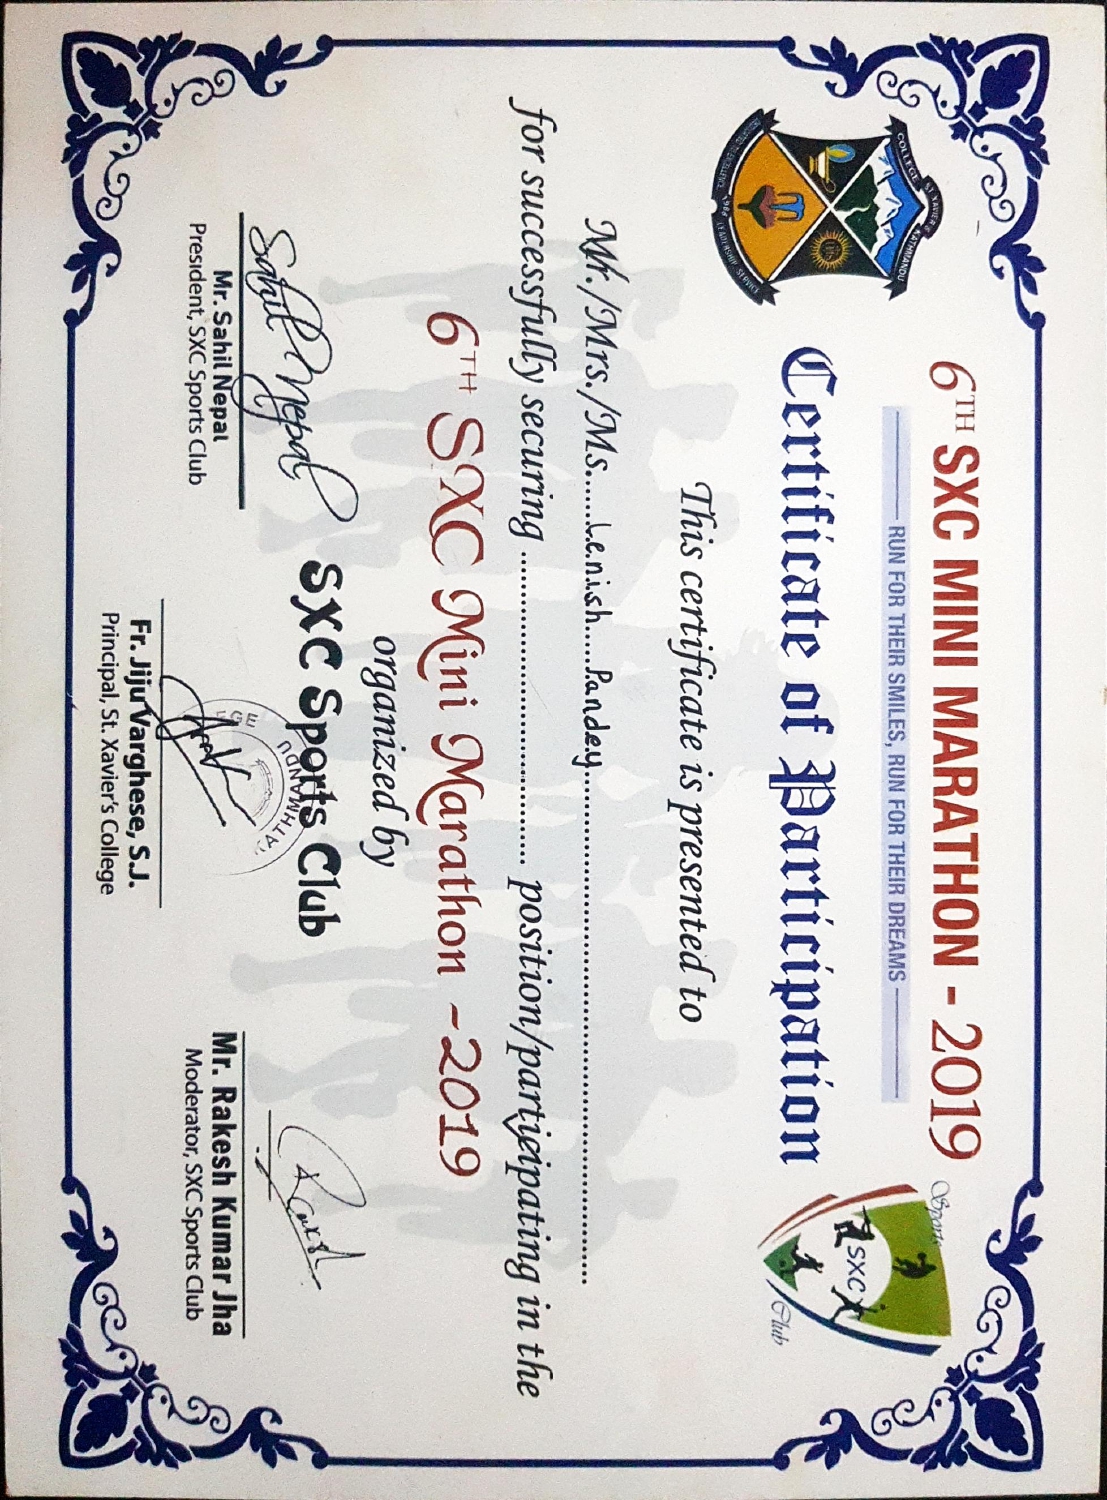 6TH SXC MINI MARATHON - 2019
RUN FOR THEIR SMILES, RUN FOR THEIR DREAMS
ST. XAVIER'S
COLLEGE KATHMANDU
1988
LEADERSHIP SERVICE
Sports
SXC
Club
Certificate of Participation
This certificate is presented to
Mr./Mrs./Ms......Lenish.....Pandey......................................................
for successfully securing ..................................... position/participating in the
6TH SXC Mini Marathon -2019
organized by
SXC Sports Club
KATHMANDU
Sahil Nepal
Mr. Sahil Nepal
President, SXC Sports Club
Fr. Jiju Varghese, S.J.
Principal, St. Xavier's College
Mr. Rakesh Kumar Jha
Moderator, SXC Sports Club